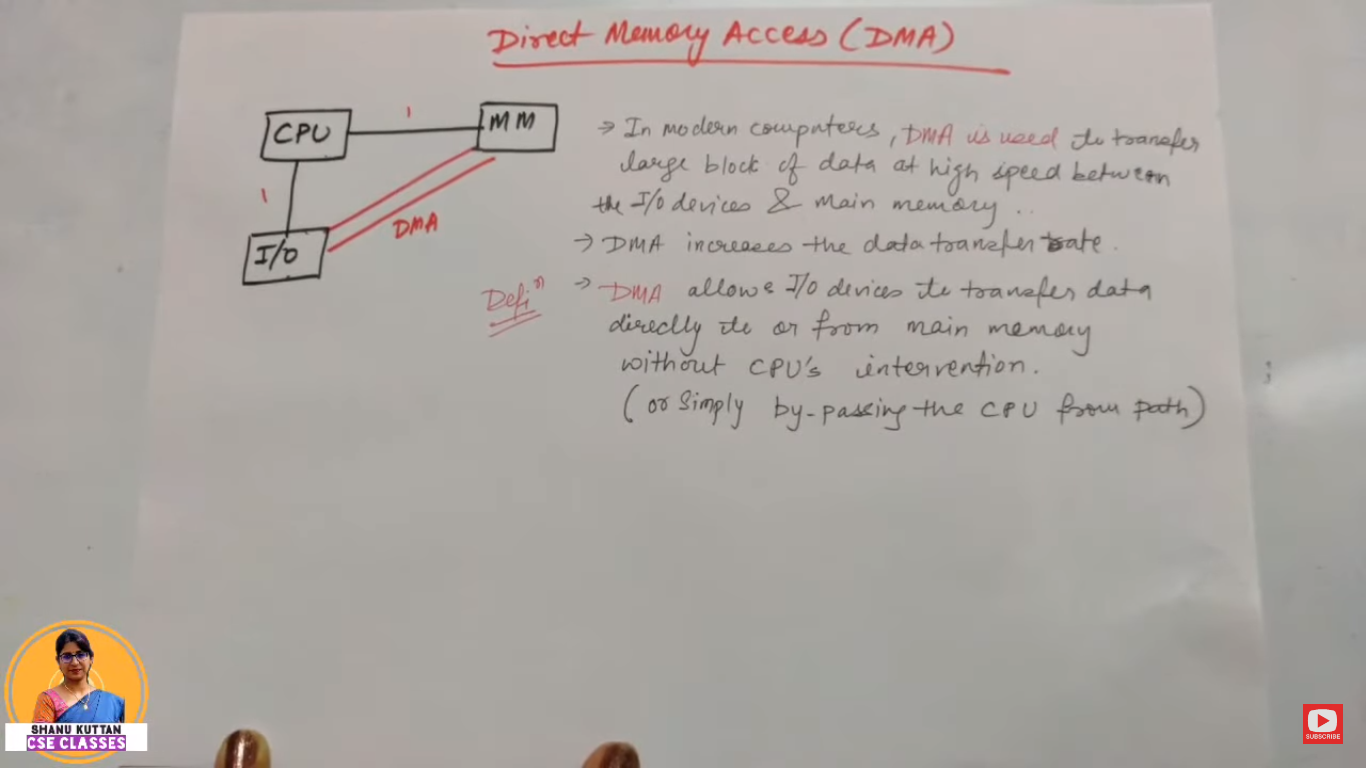 Direct Memory Access (DMA)
CPU
1
MM
→ In modern computers, DMA is used to transfer
large block of data at high speed between
the I/O devices & main memory..
1
I/O
DMA
→ DMA increases the data transfer rate.
Defiⁿ
→ DMA allows I/O devices to transfer data
directly to or from main memory
without CPU's intervention.
(or Simply by-passing the CPU from path)
SHANU KUTTAN
CSE CLASSES
SUBSCRIBE